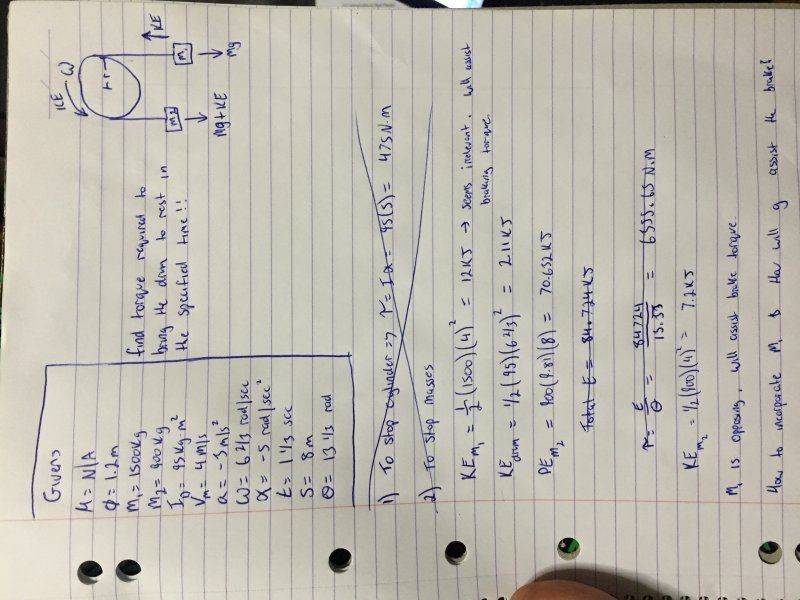 Givens
μ = N/A
φ = 1.2m
M₁ = 1500Kg
M₂ = 900Kg
I_D = 95 Kg·m²
V_m = 4 m/s
a = -3 m/s²
ω = 6 2/3 rad/sec
α = -5 rad/sec²
t = 1 1/3 sec
S = 8m
Θ = 13 1/3 rad
find torque required to
bring the drum to rest in
the specified time!!
KE ω
r
KE
M₂
M₁
Mg+KE
Mg
1) To stop cylinder => τ = Iα = 95(5) = 475 N·m
2) To stop masses
KE_M₁ = 1/2 (1500)(4)² = 12KJ → seems irrelevant. will assist
braking torque.
KE_drum = 1/2 (95)(6 2/3)² = 2.11KJ
PE_M₂ = 900(9.81)(8) = 70.632KJ
Total E = 84.724KJ
τ = E/Θ = 84724/13.33 = 6355.65 N.M
KE_M₂ = 1/2 (900)(4)² = 7.2KJ
M₁ is opposing, will assist brake torque.
How to incorporate M₁ & How will g assist the brake?